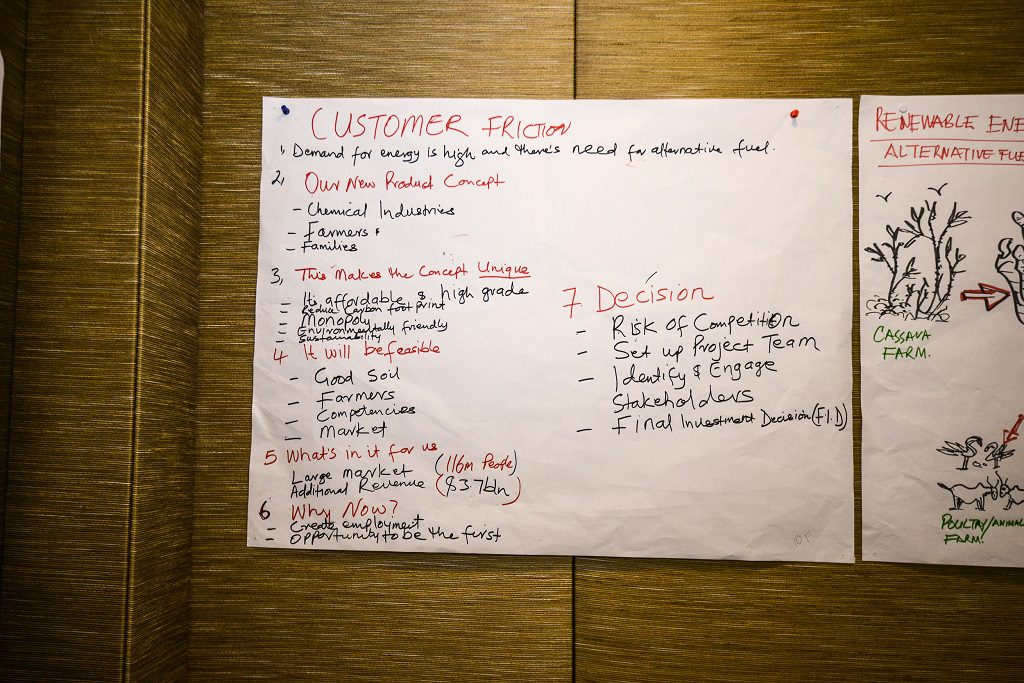 CUSTOMER FRICTION
1, Demand for energy is high and there's need for alternative fuel.
2, Our New Product Concept
- Chemical Industries
- Farmers
- Families
3, This Makes the Concept Unique
- Its affordable & high grade
- Reduce Carbon foot print
- Monopoly
- Environmentally friendly
- Sustainability
4 It will be feasible
- Good Soil
- Farmers
- Competencies
- Market
5 What's in it for us
Large market (116m People)
Additional Revenue ($3.7bln)
6 Why Now?
- Create employment
- Opportunity to be the first
7 Decision
- Risk of Competition
- Set up Project Team
- Identify & Engage
Stakeholders
- Final Investment Decision (F.I.D)
RENEWABLE ENE
ALTERNATIVE FUE
CASSAVA
FARM.
POULTRY/ANIMAL
FARM.